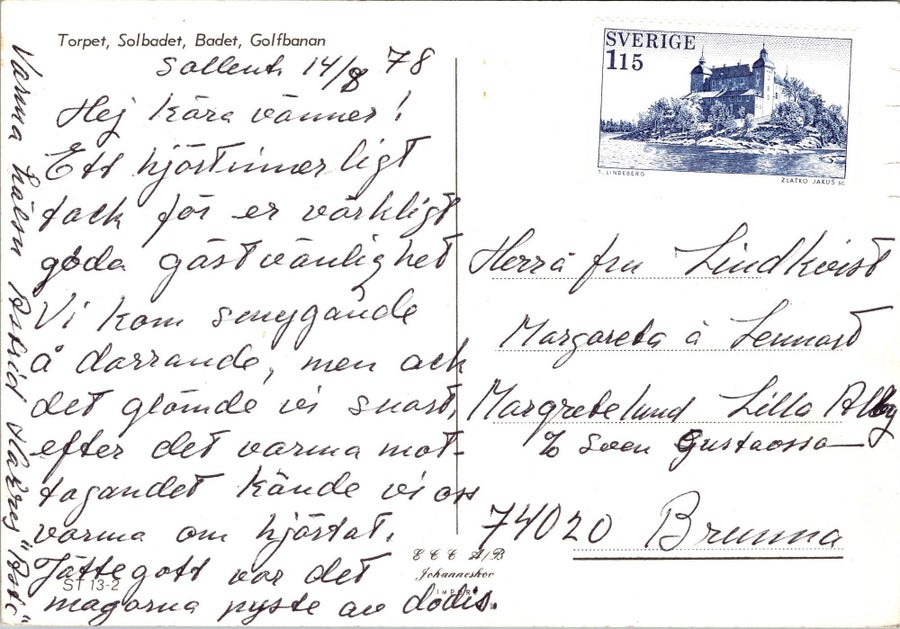 Torpet, Solbadet, Badet, Golfbanan
Sollent. 14/8 78
Hej kära vänner!
Ett hjärtinnerligt
tack för er värkligt
goda gästvänlighet
Vi kom smygande
å darrande, men ack
det glömde vi snart,
efter det varma mot-
tagandet kände vi oss
varma om hjärtat.
Jättegott var det
magarna pyste av
Varma hälsn Astrid
SVERIGE
115
T. LINDEBERG
ZLATKO JAKUŠ SC
Herr å fru Lindkvist
Margareta å Lennart
Margretelund Lilla Alby
℅ Sven Gustavsson
74020 Brunna
ECE A/B
Johanneshov
IMPORT
ST 13-2